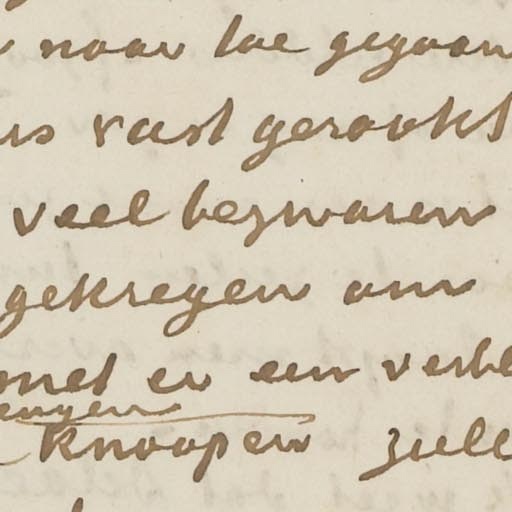 naar toe gegaan
vast geraakt
veel bezwaren
gekregen om
met er een verbe
knoopen zull